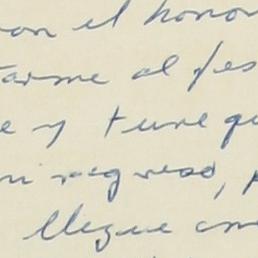 con el honor
tarme al fes
e y tuve qu
mi regreso, p
llegue con